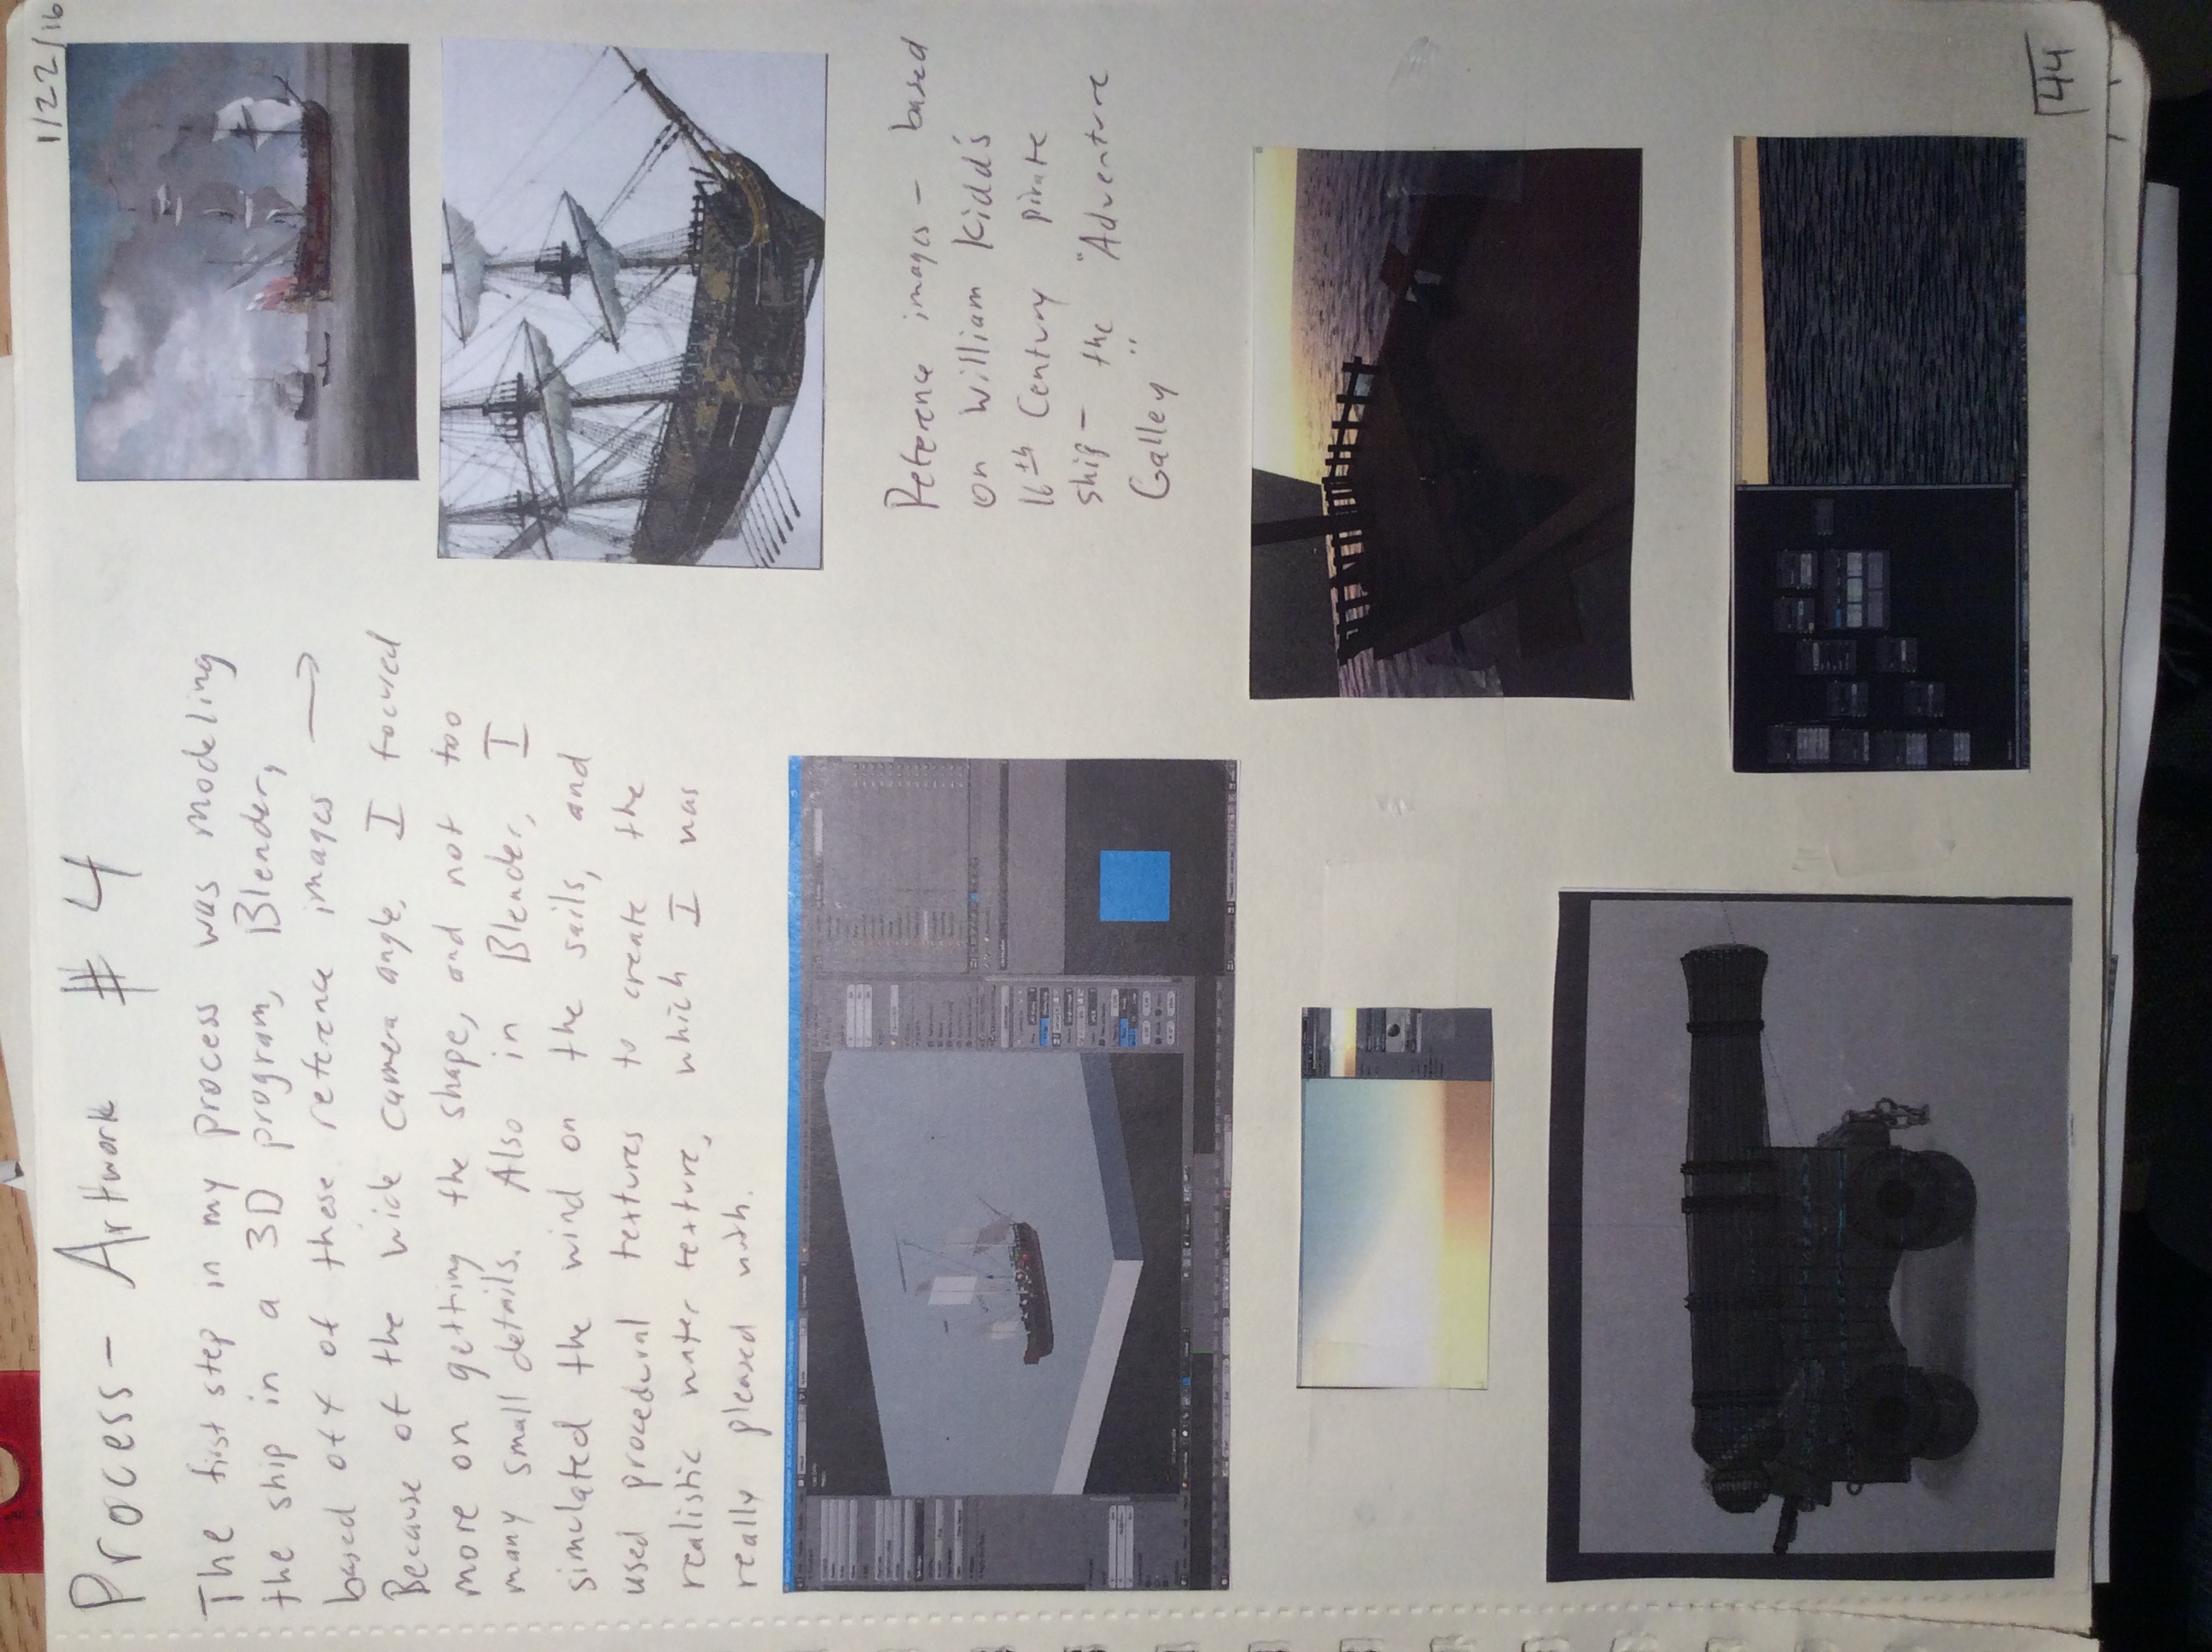 1/22/16
Process - Artwork #4
The first step in my process was modeling
the ship in a 3D program, Blender,
based off of these reference images →
Because of the wide camera angle, I focused
more on getting the shape, and not too
many small details. Also in Blender, I
simulated the wind on the sails, and
used procedural textures to create the
realistic water texture, which I was
really pleased with.
Reference images - based
on William Kidd's
16th Century pirate
ship - the "Adventure
Galley"
44